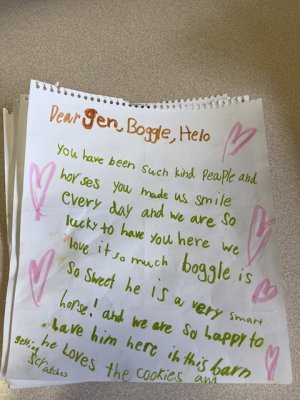 Dear Jen, Boggle, Helo
You have been such kind people and
horses you made us smile
every day and we are so
lucky to have you here we
love it so much boggle is
so sweet he is a very smart
horse! and we are so happy to
have him here in this barn
he Loves the cookies and
getting